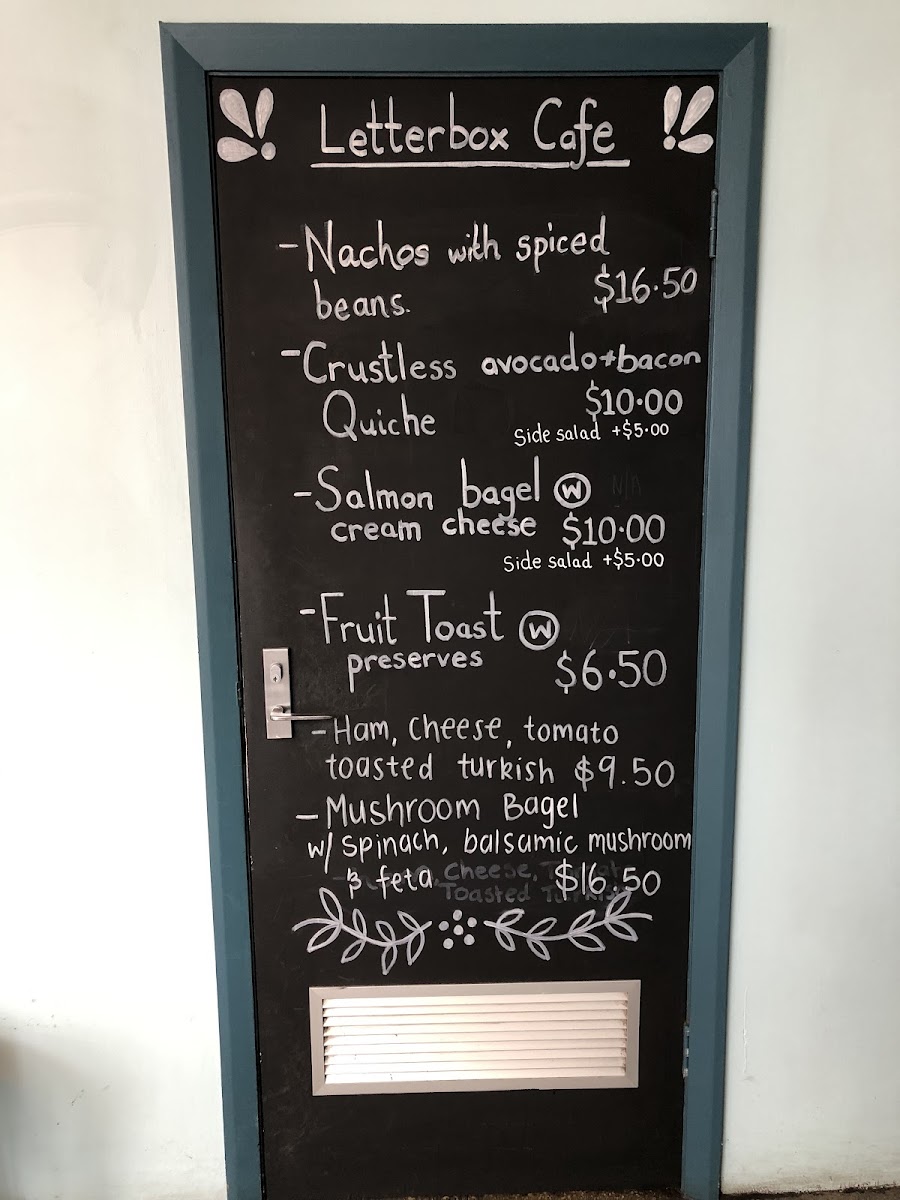 Letterbox Cafe
-Nachos with spiced
beans. $16.50
-Crustless avocado+bacon
Quiche $10.00
Side salad +$5.00
-Salmon bagel W N/A
cream cheese $10.00
Side salad +$5.00
-Fruit Toast W
preserves $6.50
-Ham, cheese, tomato
toasted turkish $9.50
-Mushroom Bagel
w/ spinach, balsamic mushroom
& feta $16.50
Cheese,
Toasted Turkish